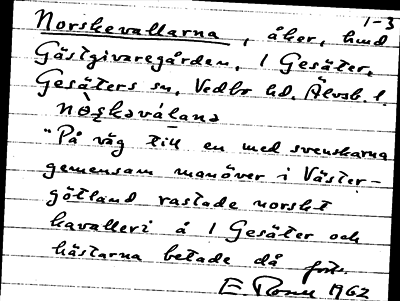 1-3
Norskevallarna, åker, hmd
Gästgivaregården, 1 Gesäter,
Gesäters sn, Vedbo hd, Älvsb. l.
"På väg till en med svenskarna
gemensam manöver i Väster-
götland rastade norskt
kavalleri å 1 Gesäter och
hästarna betade då
E. 1962